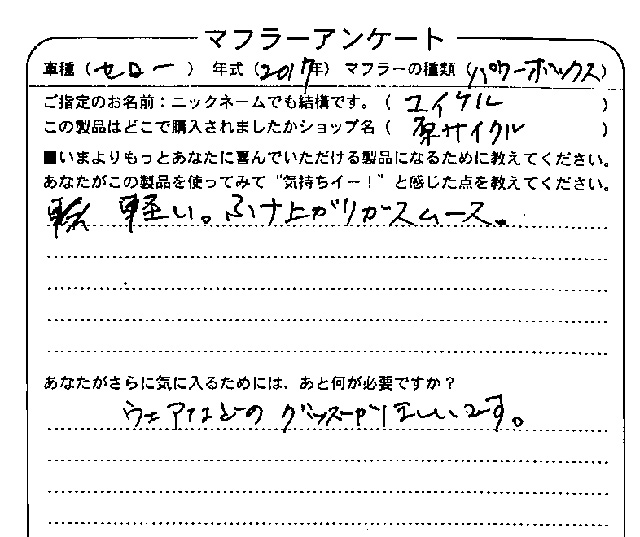 マフラーアンケート
車種（セロー） 年式（2017年） マフラーの種類（パワーボックス）
ご指定のお名前：ニックネームでも結構です。（ユイケル）
この製品はどこで購入されましたかショップ名（原サイクル）
■いまよりもっとあなたに喜んでいただける製品になるために教えてください。
あなたがこの製品を使ってみて“気持ちイー！”と感じた点を教えてください。
軽い。ふけ上がりがスムース。
あなたがさらに気に入るためには、あと何が必要ですか？
ウェアなどのグッズがほしいです。